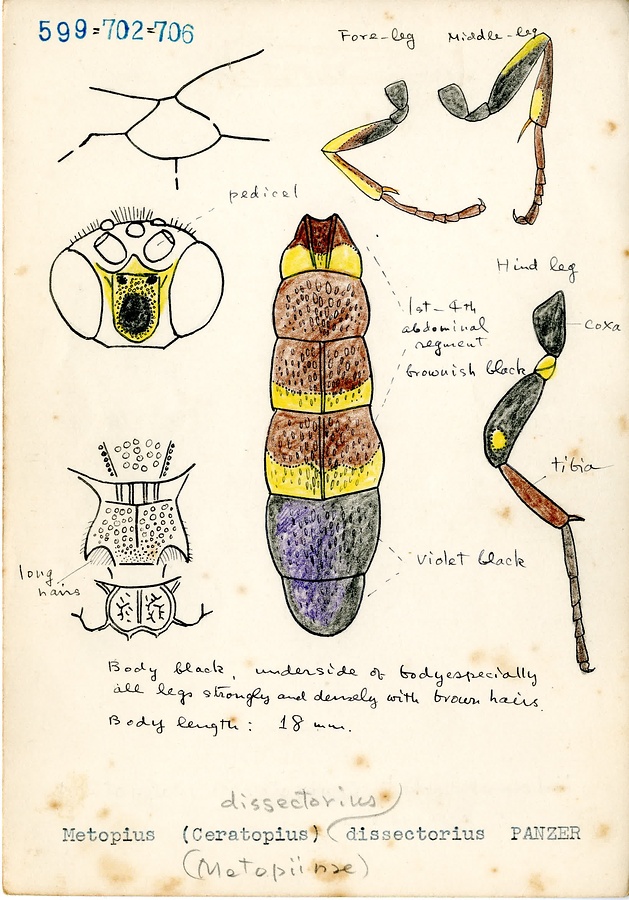 599=702=706
Fore-leg
Middle-leg
pedicel
Hind leg
coxa
1st-4th
abdominal
segment
brownish black
tibia
violet black
long
hairs
Body black, underside of body especially
all legs strongly and densely with brown hairs.
Body length: 18 mm.
dissectorius
Metopius (Ceratopius) dissectorius PANZER
(Metopiinae)